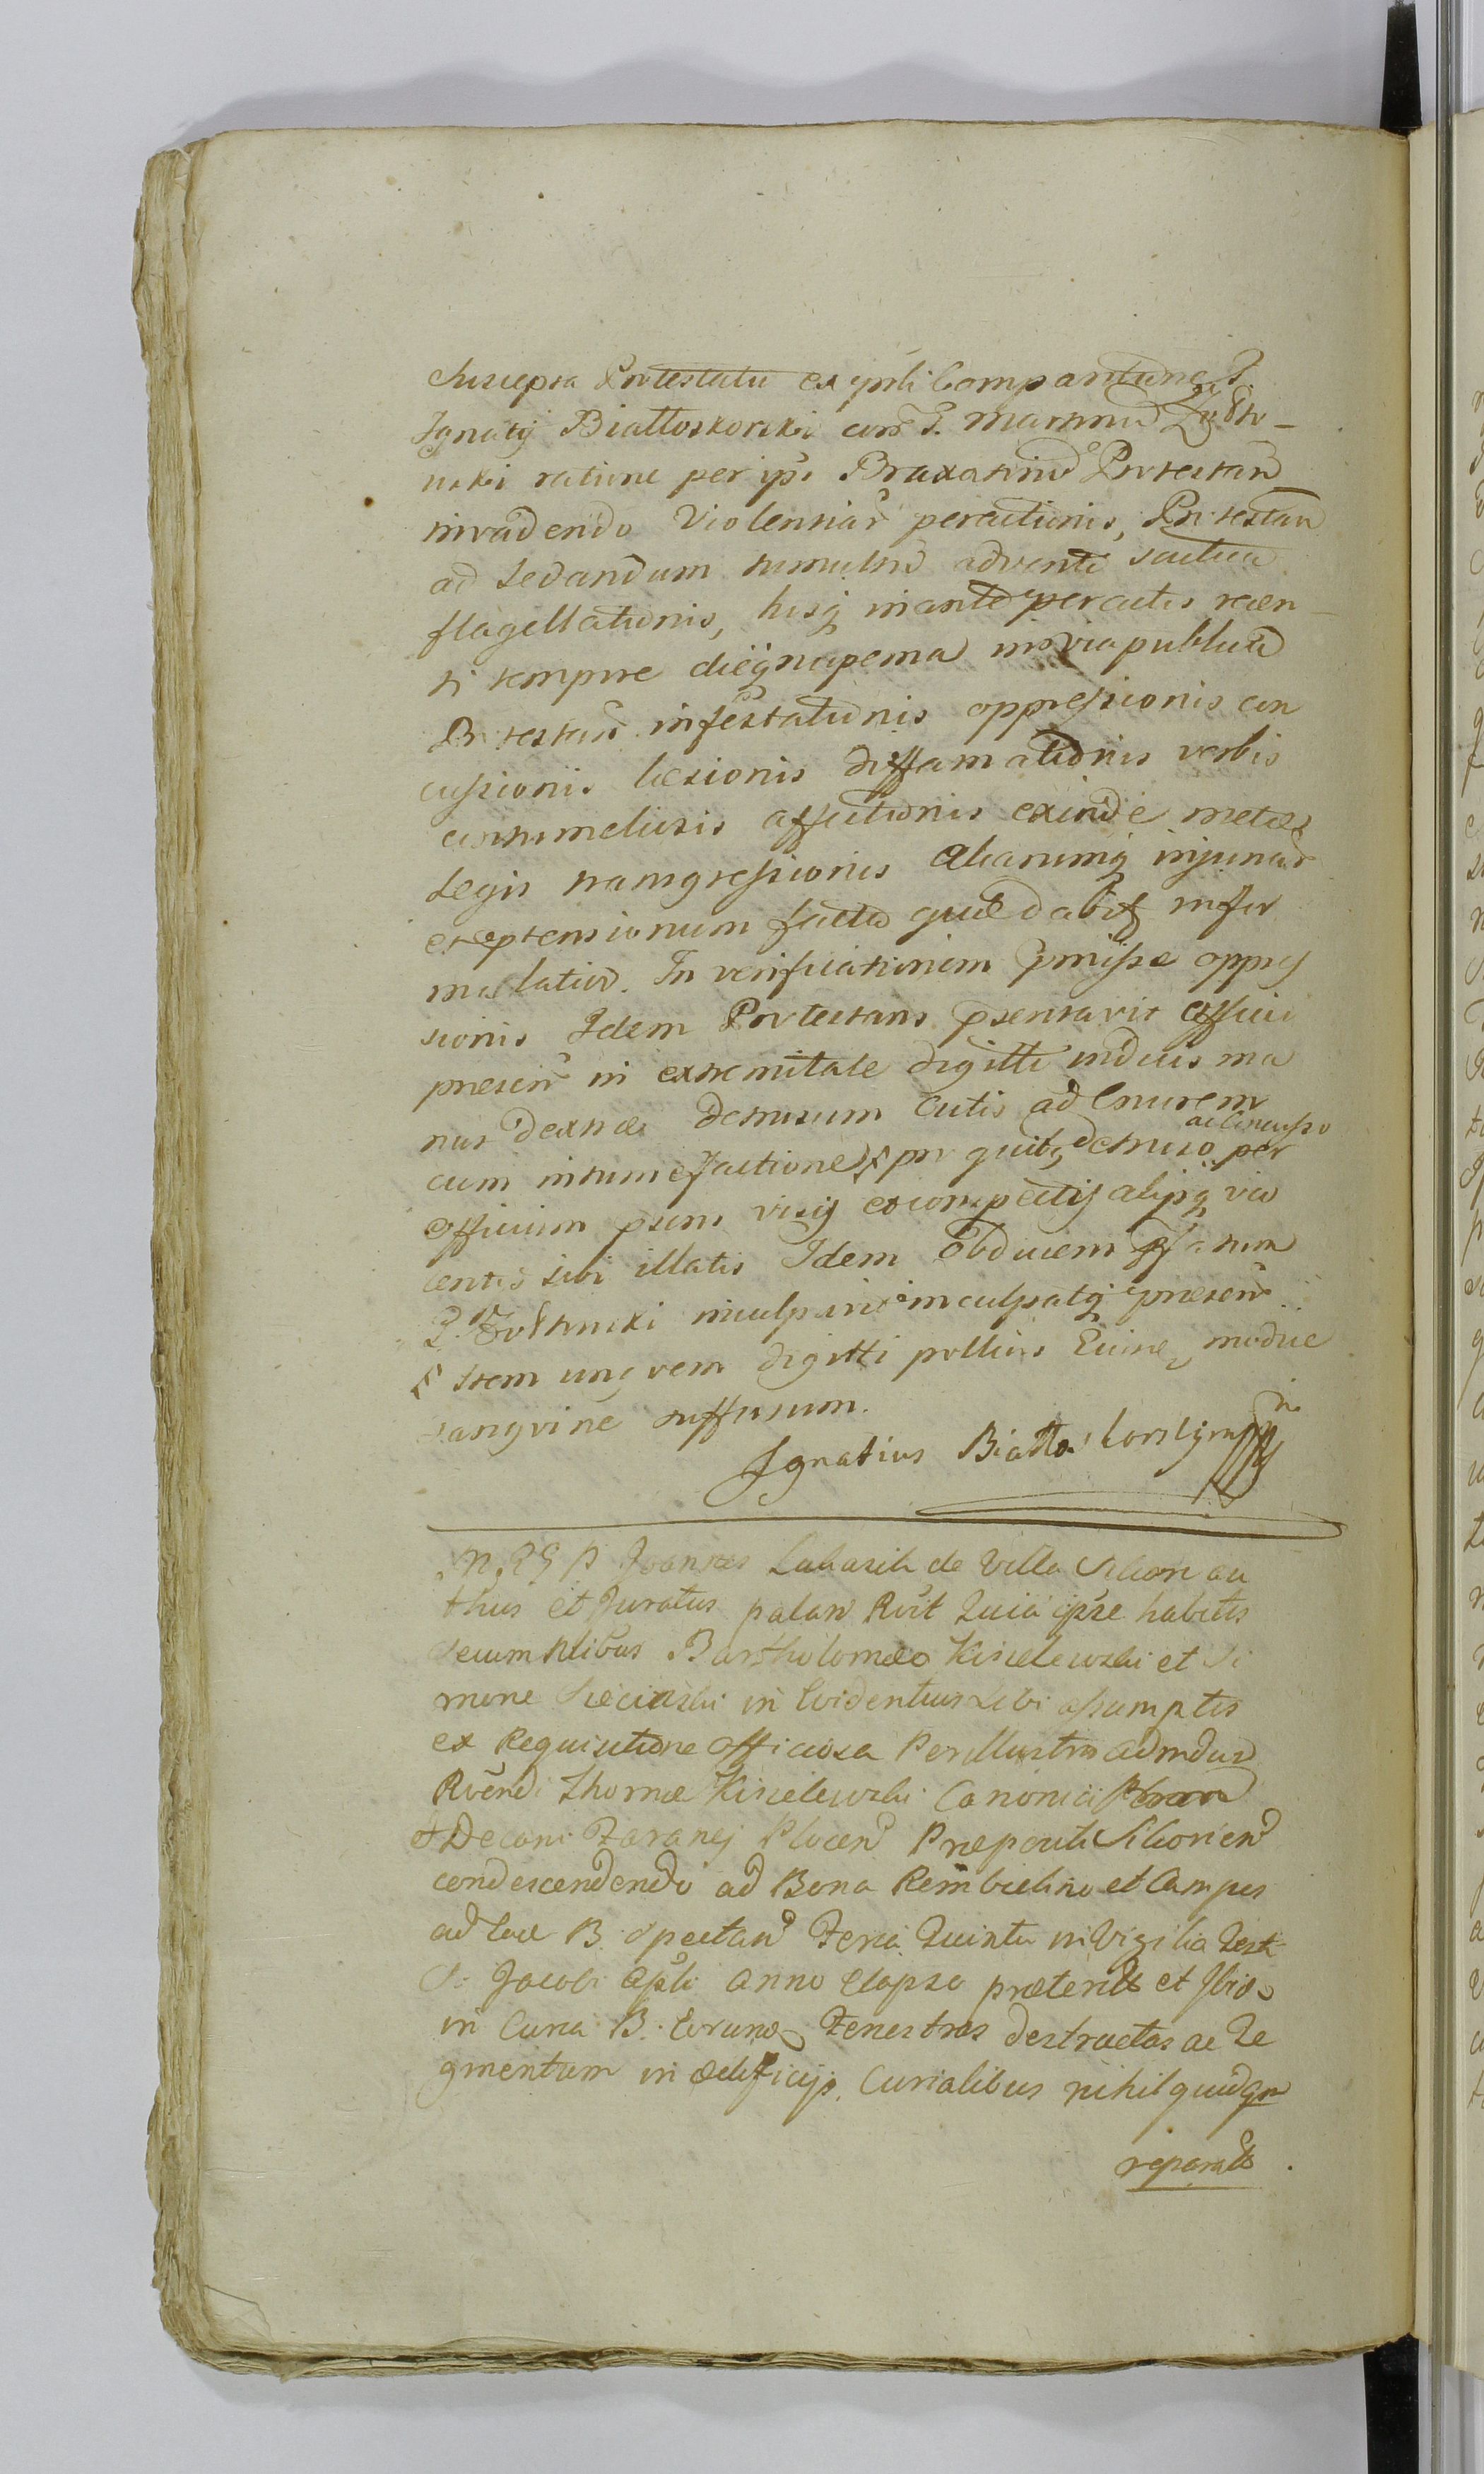 Suscepta Protestatio ex psli Comparitione G.
Ignatij Białłoskorski cum G. Martino Żołto-
wski ratione per ips. Braxatoriũ Protestan
invadendo Violentiar percutionis, Protestan
ad sedandum tumultũ advente scutica
flagellationis, hisq inante percutis recen
ti tempore in via publica
Protestan infestationis oppressionis con
cussionis læsionis diffamationis verbis
contumeliosis affectionis exinde metæ
Legis transgressionis aliarumq injuriar
et prtensionum facta quæ dabit infor
mã latior. In verificationem pmissæ oppres
sionis Idem Protestans psentavit Officio
præsen in extremitate digitti indicis ma
nus dextræ detrusum Cutis ad Cruorem
cum intumefactione, pro quibq detruso ac Concusso per
Officium psens visis et conspectis alijsq vio
lentis sibi illatis Idem Obducens
G. Żołtowski inculpavit inculpatq præsen
Item ungvem digitti pollicis Ejusdem modice
sangvine suffusum.
Ignatius Białłoskorski mpp
M. R. G. P. Joannes Labasik de Villa Sikorz au
thus et Juratus palam Rvit Quia ipse habitis
secum Nlibus Bartholomæo Kisielewski et Si
mone Sieciński in Evidentius sibi assumptis
ex Requisitione Officiosa Perillustris admdum
Rvendi Thomæ Kisielewski Canonici
et Decani Foranej Plocen Præpositi Sikorien
condescendendo ad Bona Rembielino et Campos
ad hæc B. spectan Feria Quinta in Vigilia Festi
S. Jacobi Apli Anno Elapso præterito et Ibid.
in Curia B. Eorund Fenestras destructas ac Te
gmentum in ædificijs Curialibus nihil quidqm
reparato.